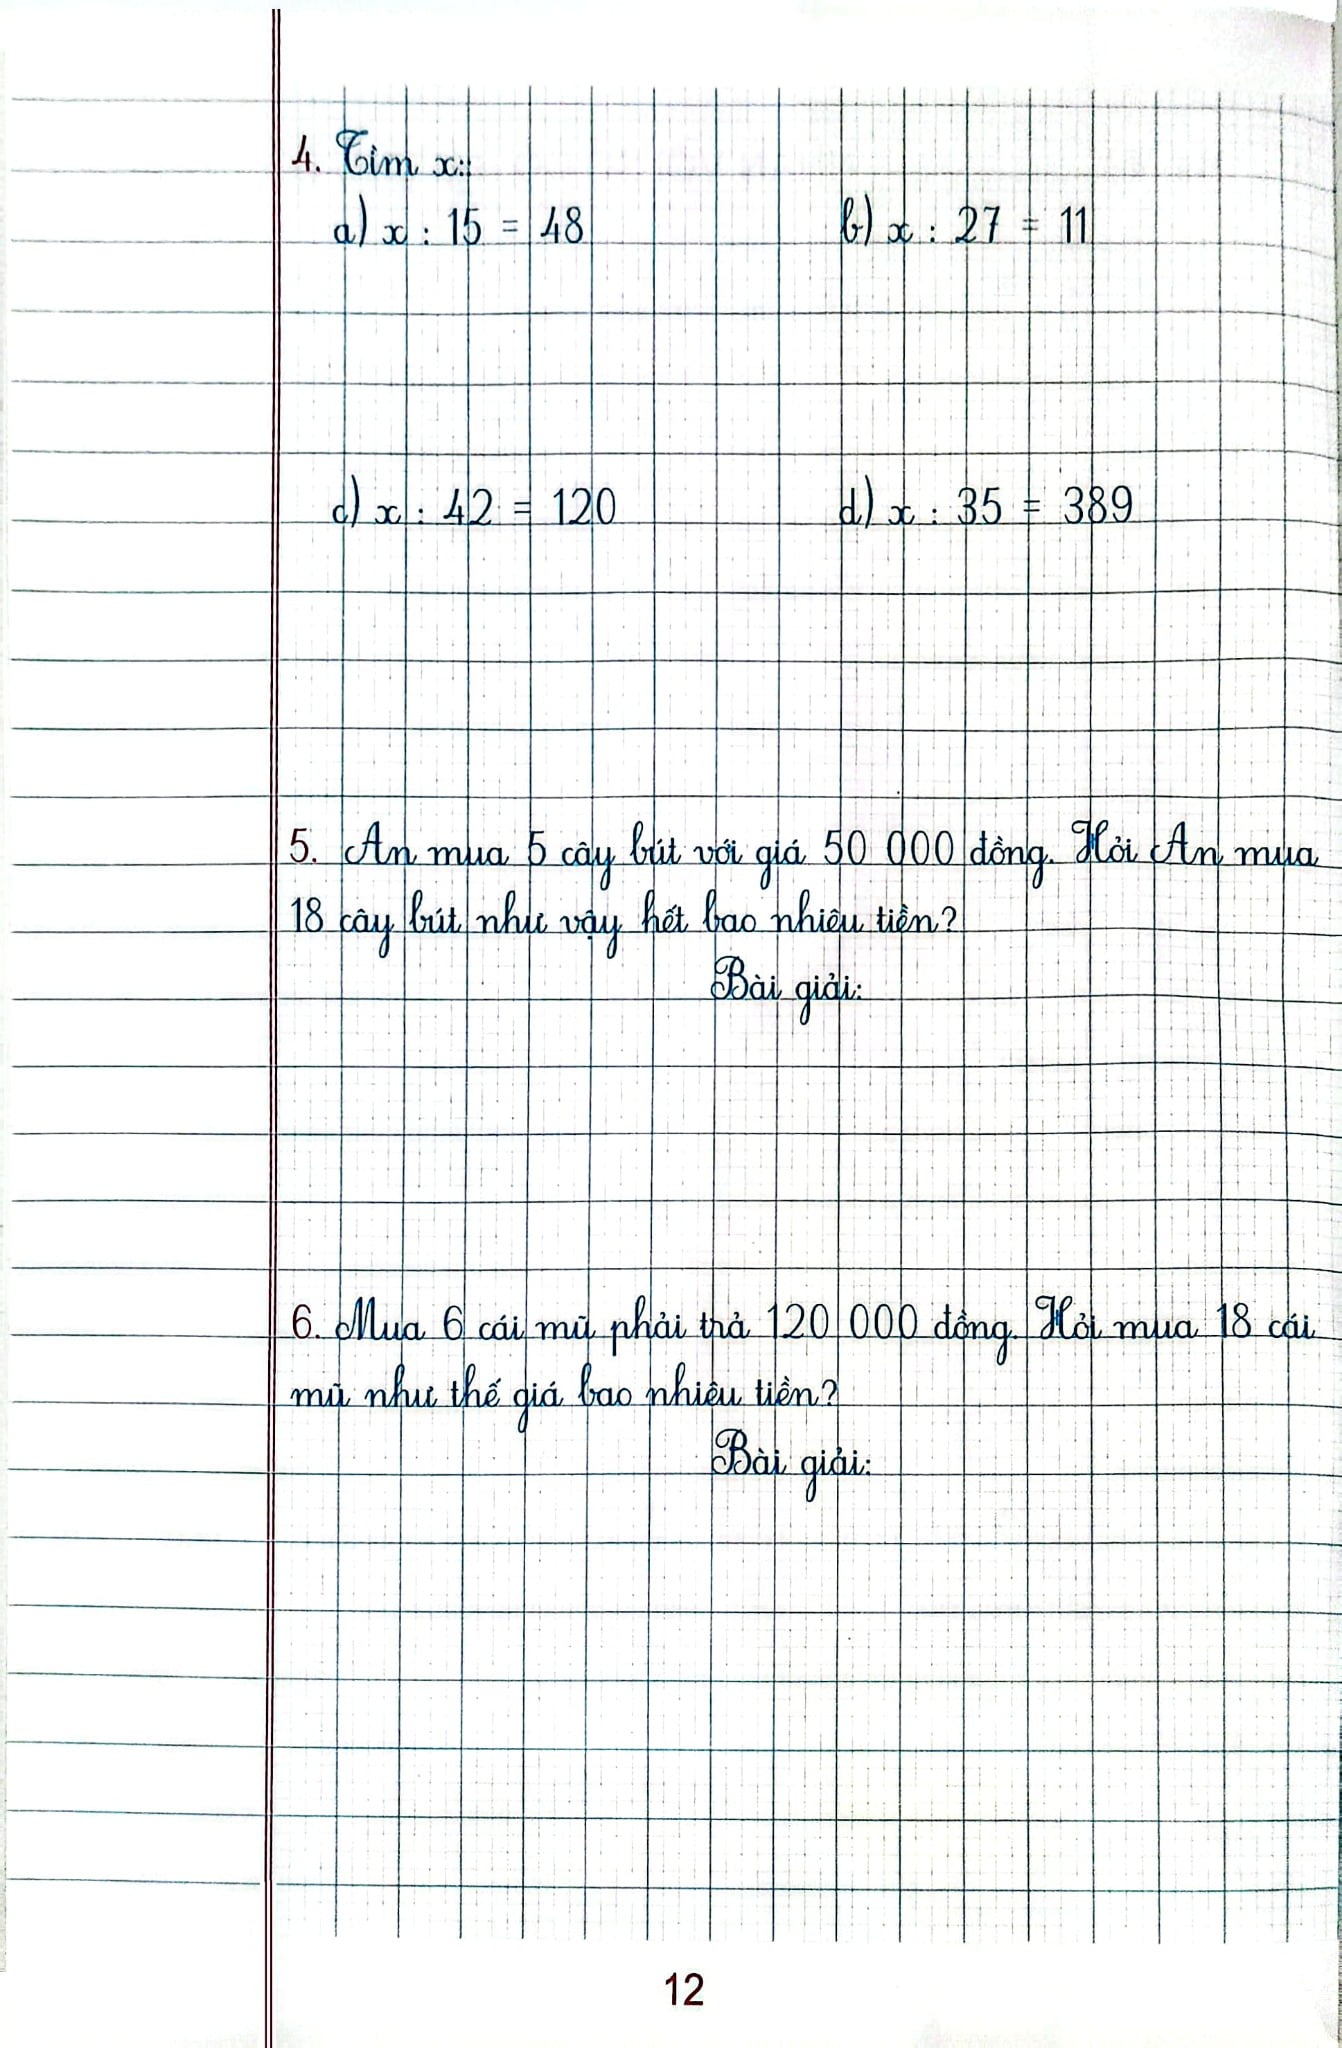 4. Tìm x:
a) x : 15 = 48 b) x : 27 = 11
c) x : 42 = 120 d) x : 35 = 389
5. An mua 5 cây bút với giá 50 000 đồng. Hỏi An mua
18 cây bút như vậy hết bao nhiêu tiền?
Bài giải:
6. Mua 6 cái mũ phải trả 120 000 đồng. Hỏi mua 18 cái
mũ như thế giá bao nhiêu tiền?
Bài giải:
12